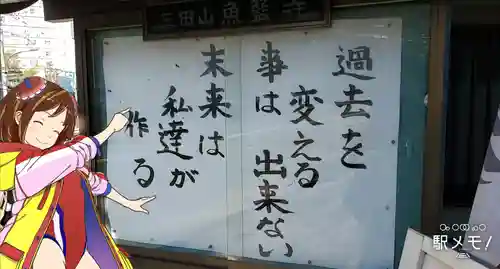 三田山魚籃寺
過去を
変える
事は
出来ない
末来は
私達が
作る
駅メモ!